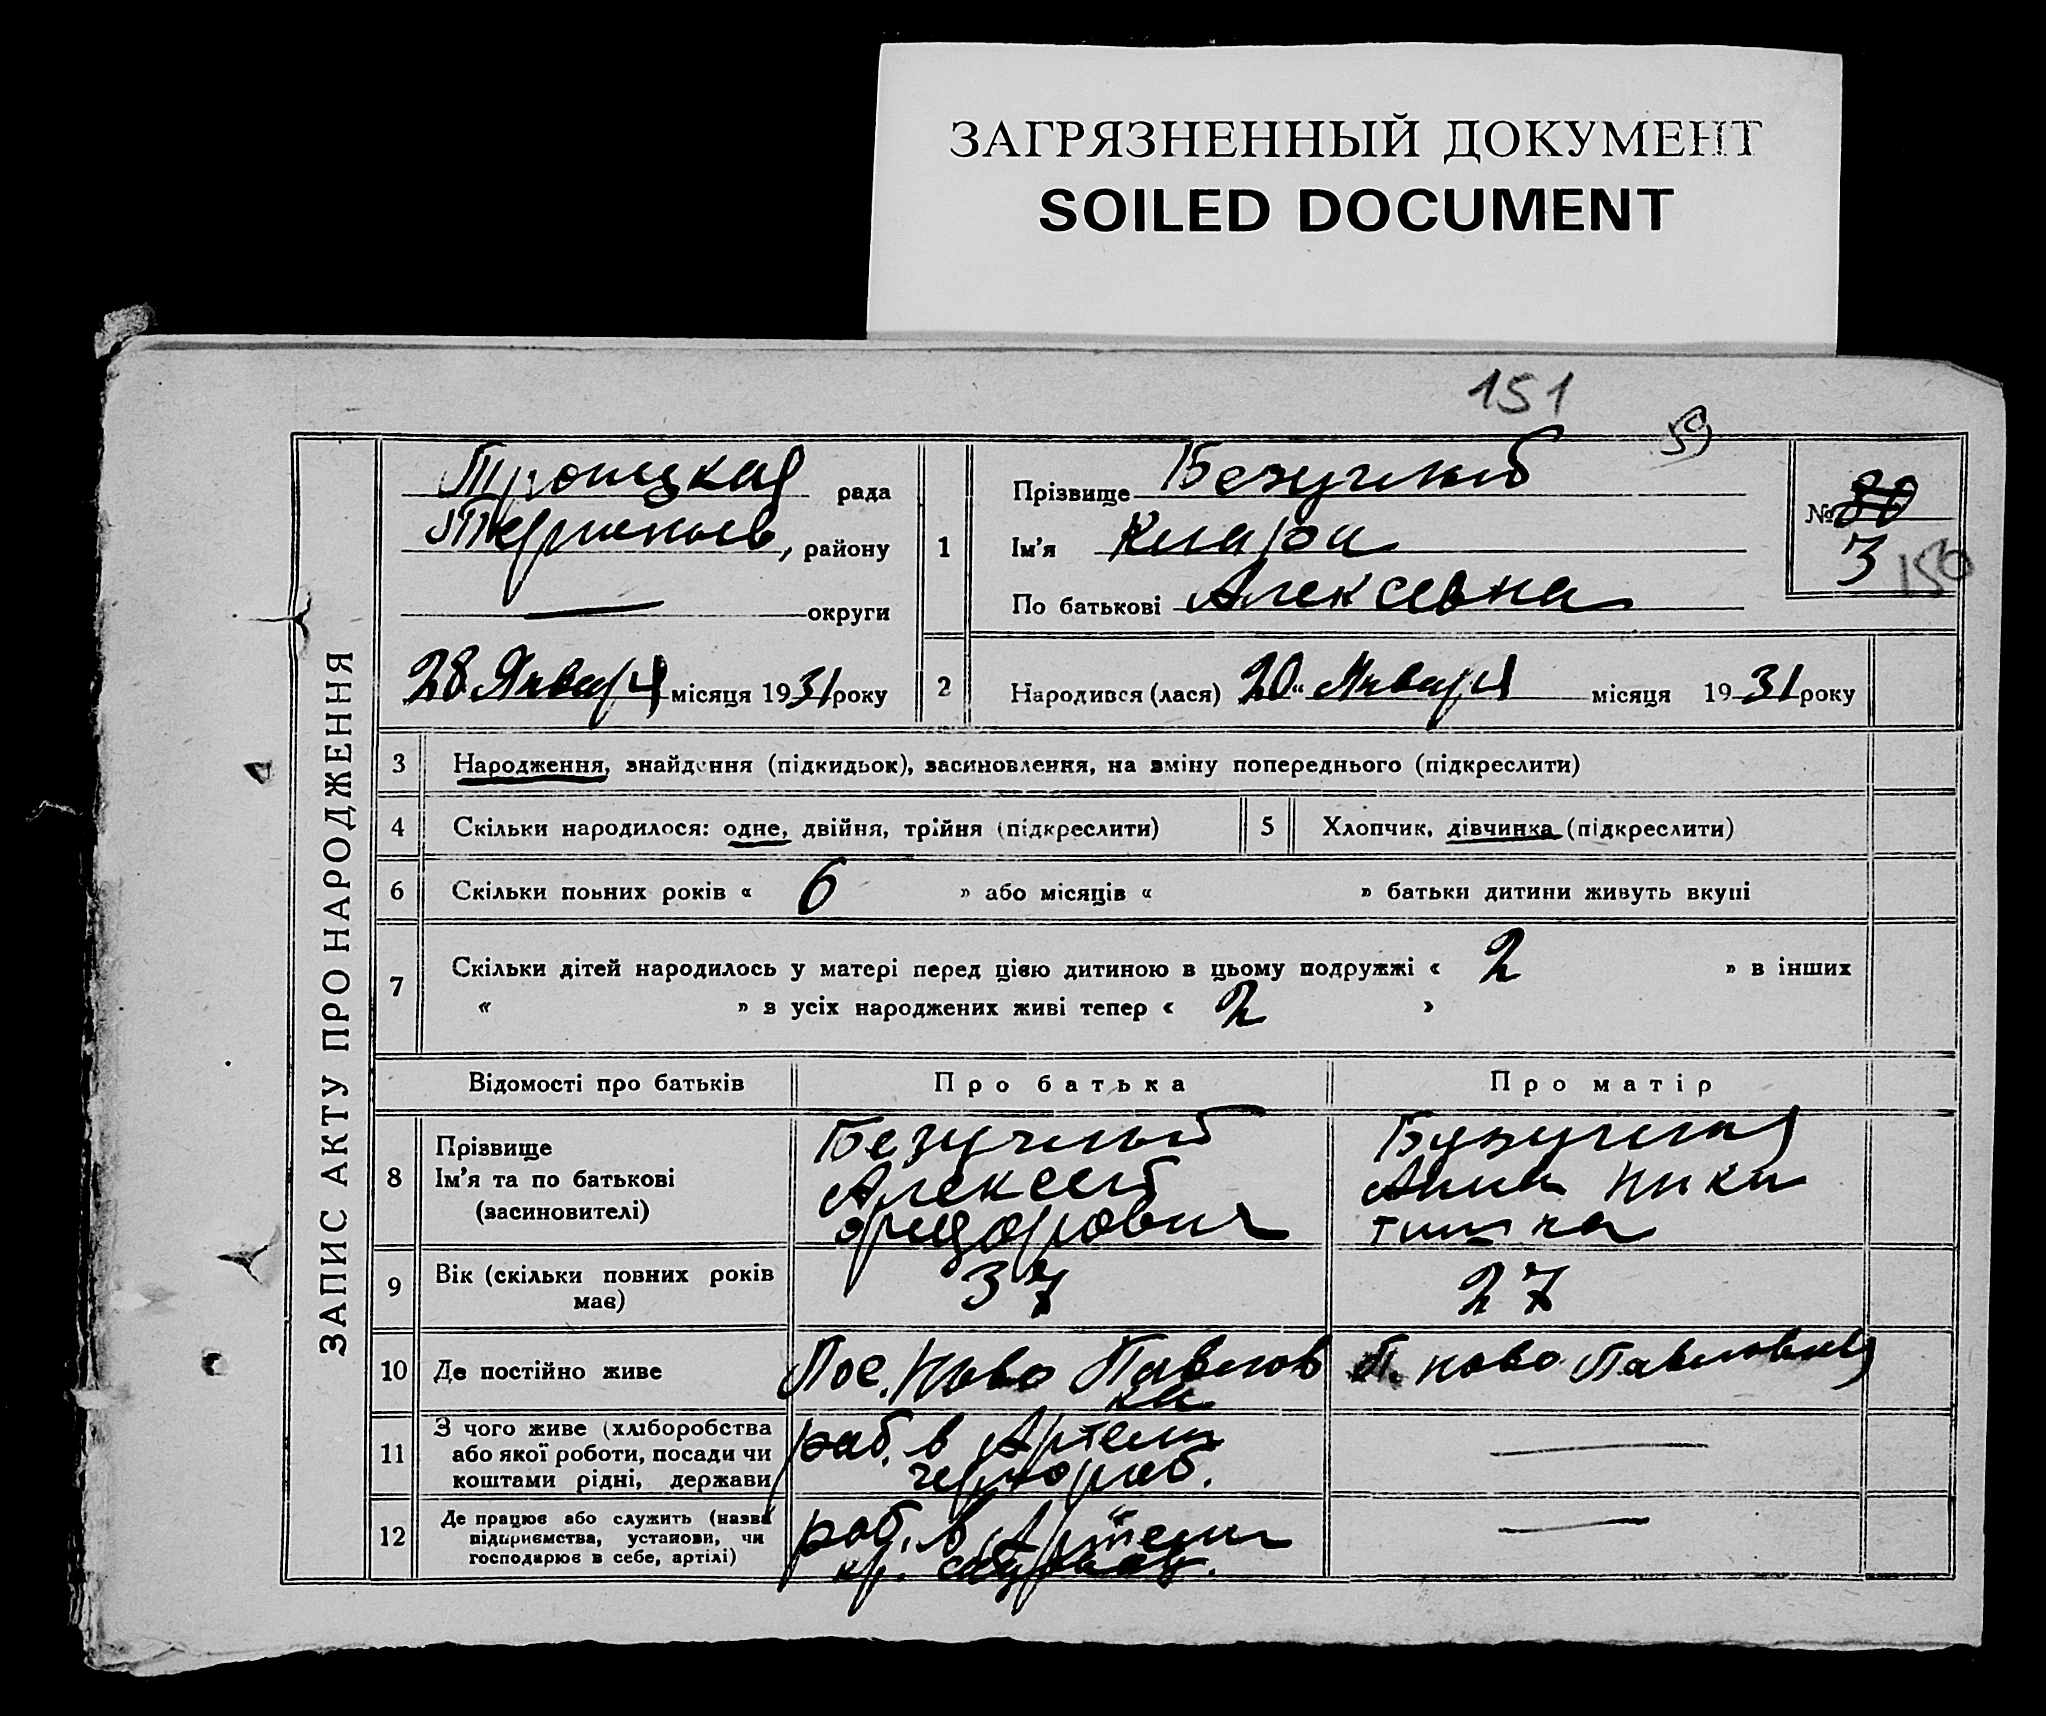 ЗАГРЯЗНЕННЫЙ ДОКУМЕНТ
SOILED DOCUMENT
151
59
ЗАПИС АКТУ ПРО НАРОДЖЕННЯ
Троицкая рада
району
— округи
28 Января місяця 1931 року
1
Прізвище Безуглый
Ім'я Клара
По батькові Алексевна
№ 30
3 150
2 Народився (лася) 20 " Января місяця 1931 року
3 Народження, знайдення (підкидьок), засиновлення, на зміну попереднього (підкреслити)
4 Скільки народилося: одне, двійня, трійня (підкреслити)
5 Хлопчик, дівчинка (підкреслити)
6 Скільки повних років « 6 » або місяців « » батьки дитини живуть вкупі
7 Скільки дітей народилось у матері перед цією дитиною в цьому подружжі « 2 » в інших
« » з усіх народжених живі тепер « 2 »
Відомості про батьків Про батька Про матір
8 Прізвище
Ім'я та по батькові
(засиновителі)
Безуглый
Алексей
Федорович
Безуглая
Анна Ники
тишна
9 Вік (скільки повних років
має)
37
27
10 Де постійно живе
Пос. Ново Павлов
ка
П. Ново Павловка
11 З чого живе (хліборобства
або якої роботи, посади чи
коштами рідні, держави
раб. в Артели
чернораб.
—
12 Де працює або служить (назва
підприємства, установи, чи
господарює в себе, артілі)
раб. в Артели
кр.
—